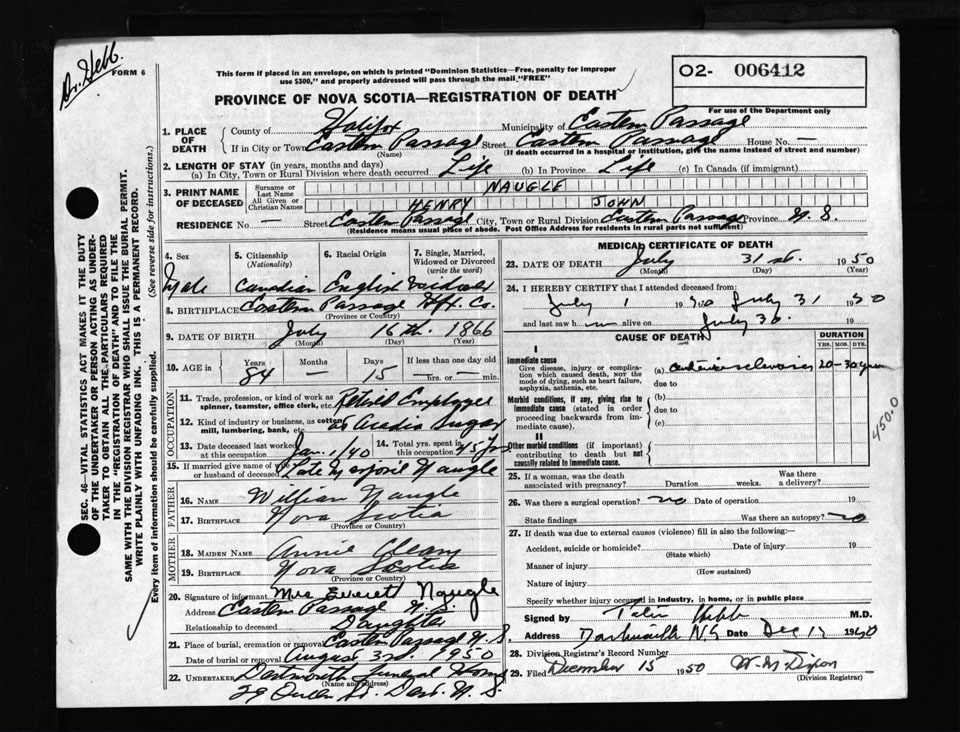 Dr. Hebb.
FORM 6
This form if placed in an envelope, on which is printed "Dominion Statistics—Free, penalty for improper
use $300," and properly addressed will pass through the mail "FREE"
O2- 006412
For use of the Department only
PROVINCE OF NOVA SCOTIA—REGISTRATION OF DEATH
1. PLACE OF DEATH
County of Halifax Municipality of Eastern Passage
If in City or Town Eastern Passage Street Eastern Passage House No. —
(Name) (If death occurred in a hospital or institution, give the name instead of street and number)
2. LENGTH OF STAY (in years, months and days)
(a) In City, Town or Rural Division where death occurred Life (b) In Province Life (c) In Canada (if immigrant)
3. PRINT NAME OF DECEASED
Surname or Last Name NAUGLE
All Given or Christian Names HENRY JOHN
RESIDENCE No. Street Eastern Passage City, Town or Rural Division Eastern Passage Province N.S.
(Residence means usual place of abode. Post Office Address for residents in rural parts not sufficient)
4. Sex
Male
5. Citizenship
(Nationality)
Canadian
6. Racial Origin
English
7. Single, Married,
Widowed or Divorced
(write the word)
8. BIRTHPLACE Eastern Passage Hfx. Co.
(Province or Country)
9. DATE OF BIRTH July 16th. 1866
(Month) (Day) (Year)
10. AGE in Years Months Days If less than one day old
84 — 15 — hrs. or — min.
OCCUPATION
11. Trade, profession, or kind of work as spinner, teamster, office clerk, etc. Retired Employee
12. Kind of industry or business, as cotton mill, lumbering, bank, etc. Acadia Sugar
13. Date deceased last worked at this occupation Jan. 1/40
14. Total yrs. spent in this occupation 45
15. If married give name of wife or husband of deceased Late Marjorie Naugle
FATHER
16. NAME William Naugle
17. BIRTHPLACE Nova Scotia
(Province or Country)
MOTHER
18. MAIDEN NAME Annie
19. BIRTHPLACE Nova Scotia
(Province or Country)
20. Signature of informant Mrs Everett Naugle
Address Eastern Passage N.S.
Relationship to deceased Daughter
21. Place of burial, cremation or removal Eastern Passage N.S.
Date of burial or removal August 3rd. 1950
22. UNDERTAKER Dartmouth Funeral Home
(Name and address)
29 Queen St. Dart. N.S.
MEDICAL CERTIFICATE OF DEATH
23. DATE OF DEATH July 31st. 1950
(Month) (Day) (Year)
24. I HEREBY CERTIFY that I attended deceased from:
July 1 1950 to July 31 1950
and last saw h im alive on July 30. 19
CAUSE OF DEATH
DURATION
YRS. MOS. DYS.
I
Immediate cause
Give disease, injury or complication which caused death, not the mode of dying, such as heart failure, asphyxia, asthenia, etc.
(a) arteriosclerosis 20-30 years
due to
Morbid conditions, if any, giving rise to immediate cause (stated in order proceeding backwards from immediate cause).
(b)
due to
(c)
II
Other morbid conditions (if important) contributing to death but not causally related to immediate cause.
450.0
25. If a woman, was the death associated with pregnancy? Duration weeks. Was there a delivery?
26. Was there a surgical operation? no Date of operation 19
State findings Was there an autopsy? no
27. If death was due to external causes (violence) fill in also the following:
Accident, suicide or homicide? Date of injury 19
(State which)
Manner of injury
(How sustained)
Nature of injury
Specify whether injury occurred in industry, in home, or in public place
Signed by Hebb M.D.
Address Dartmouth NS Date Dec 1950
28. Division Registrar's Record Number
29. Filed December 15 1950 W. M. Dixon
(Division Registrar)
SEC. 46—VITAL STATISTICS ACT MAKES IT THE DUTY
OF THE UNDERTAKER OR PERSON ACTING AS UNDER-
TAKER TO OBTAIN ALL THE PARTICULARS REQUIRED
IN THE "REGISTRATION OF DEATH" AND TO FILE THE
SAME WITH THE DIVISION REGISTRAR WHO SHALL ISSUE THE BURIAL PERMIT.
WRITE PLAINLY WITH UNFADING INK. THIS IS A PERMANENT RECORD.
Every item of information should be carefully supplied. (See reverse side for instructions.)